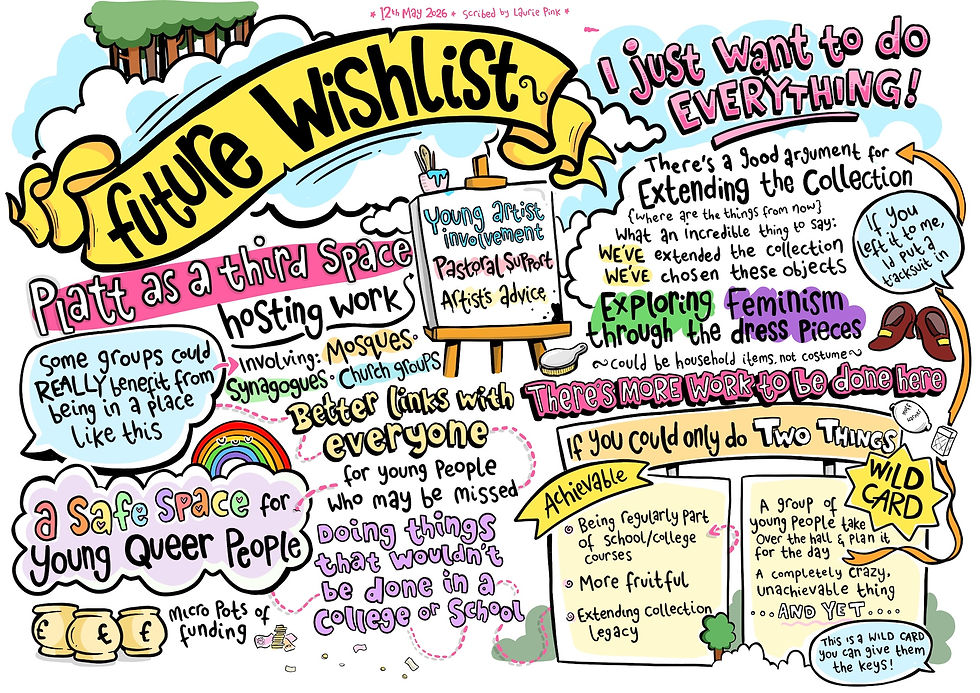 * 12th May 2026 * Scribed by Laurie Pink *
future Wishlist
I just want to do
EVERYTHING!
There's a good argument for
Extending the Collection
{where are the things from now}
What an incredible thing to say:
WE'VE extended the collection
WE'VE chosen these objects
If you
left it to me,
Id put a
tracksuit in
Exploring Feminism
through the dress pieces
~could be household items, not costume~
There's more work to be done here
Young artist
involvement
Pastoral Support
Artist's advice
Platt as a third space
hosting work
Involving: Mosques.
Synagogues. Church groups
Some groups could
REALLY benefit from
being in a place
like this
Better links with
everyone
for young people
who may be missed
a safe space for
Young Queer People
Doing things
that wouldn't
be done in a
College or School
£ £ £
Micro pots of
funding
If you could only do TWO THINGS
Achievable
Being regularly part
of school/college
courses
More fruitful
Extending collection
legacy
WILD
CARD
A group of
young people take
over the hall & plan it
for the day
A completely crazy,
unachievable thing
...AND YET....
This is a WILD CARD
you can give them
the keys!